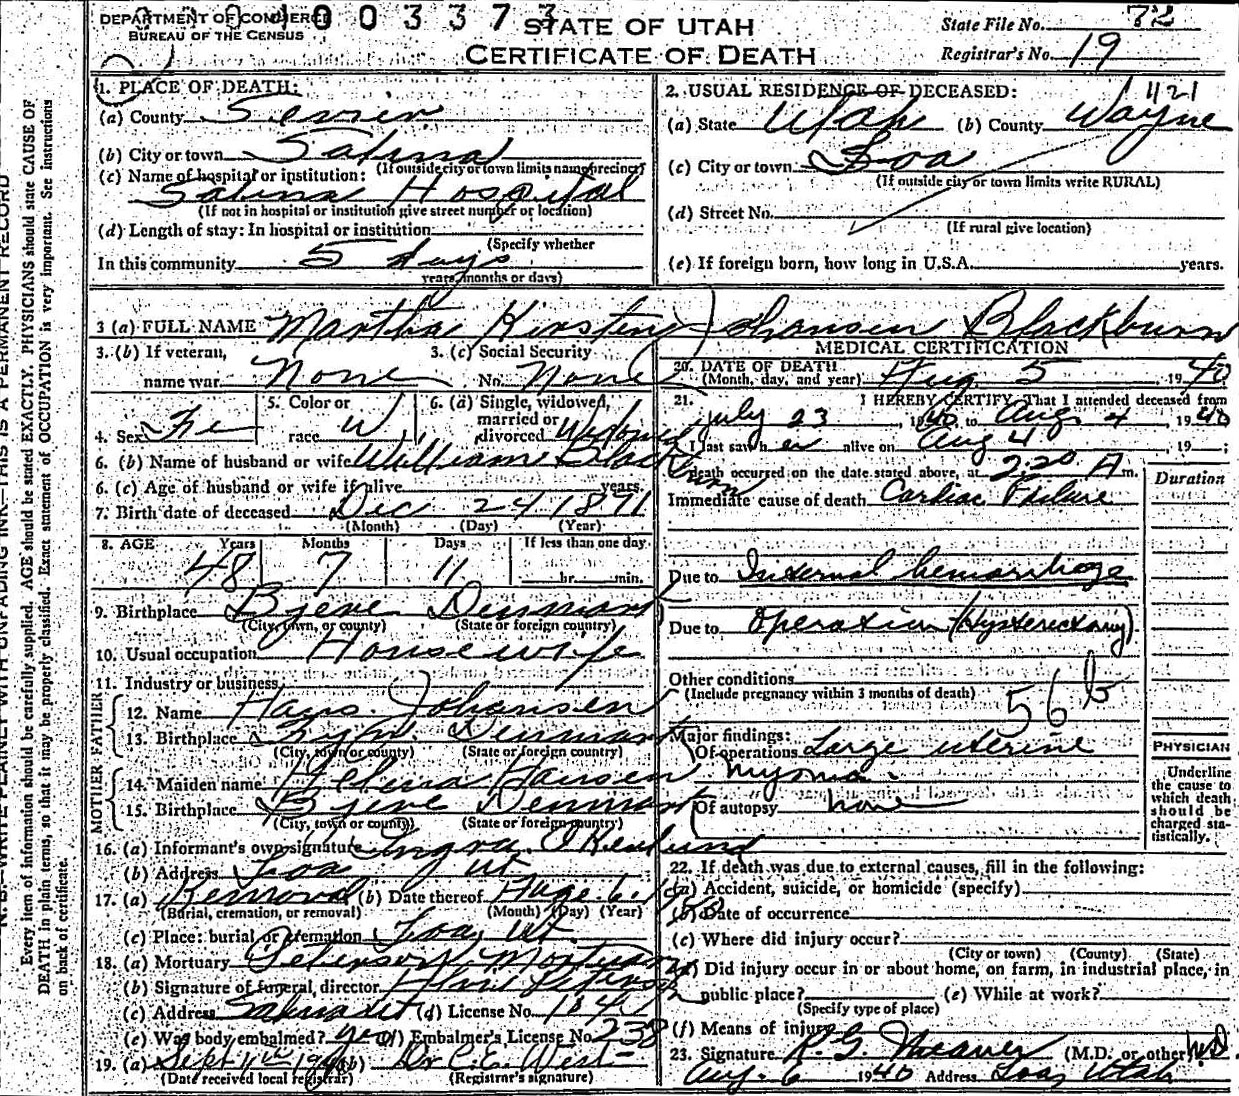 DEPARTMENT OF COMMERCE
BUREAU OF THE CENSUS
003373
STATE OF UTAH
CERTIFICATE OF DEATH
State File No. 72
Registrar's No. 19
1. PLACE OF DEATH:
(a) County Sevier
(b) City or town Salina
(If outside city or town limits name precinct)
(c) Name of hospital or institution:
Salina Hospital
(If not in hospital or institution give street number or location)
(d) Length of stay: In hospital or institution
(Specify whether
In this community 5 days
years, months or days)
2. USUAL RESIDENCE OF DECEASED: 421
(a) State Utah (b) County Wayne
(c) City or town Loa
(If outside city or town limits write RURAL)
(d) Street No.
(If rural give location)
(e) If foreign born, how long in U.S.A. years.
3 (a) FULL NAME Martha Kirstin Johansen Blackburn
3. (b) If veteran, name war None
3. (c) Social Security No. None
4. Sex Fe
5. Color or race W
6. (a) Single, widowed, married or divorced Widowed
6. (b) Name of husband or wife William Blackburn
6. (c) Age of husband or wife if alive years.
7. Birth date of deceased Dec 24 1891
(Month) (Day) (Year)
8. AGE Years Months Days If less than one day
48 7 11 hr. min.
9. Birthplace Bjeve Denmark
(City, town, or county) (State or foreign country)
10. Usual occupation Housewife
11. Industry or business
FATHER
12. Name Hans Johansen
13. Birthplace Denmark
(City, town or county) (State or foreign country)
MOTHER
14. Maiden name Hansen
15. Birthplace Bjeve Denmark
(City, town or county) (State or foreign country)
16. (a) Informant's own signature Ingra
(b) Address Loa Ut
17. (a) Removal (b) Date thereof Aug. 6, 1940
(Burial, cremation, or removal) (Month) (Day) (Year)
(c) Place: burial or cremation Loa, Ut.
18. (a) Mortuary Peterson Mortuary
(b) Signature of funeral director
(c) Address Salina Ut (d) License No. 184
(e) Was body embalmed? yes (f) Embalmer's License No. 238
19. (a) Sept 11th 1940 (b) Dr C. E. West
(Date received local registrar) (Registrar's signature)
MEDICAL CERTIFICATION
20. DATE OF DEATH
(Month, day, and year) Aug 5, 1940
21. I HEREBY CERTIFY, That I attended deceased from
July 23, 1940, to Aug. 4, 1940
I last saw her alive on Aug 4, 19 ;
death occurred on the date stated above, at 2:20 A m.
Duration
Immediate cause of death Cardiac Failure
Due to Internal hemorrhage
Due to Operation (Hysterectomy)
Other conditions
(Include pregnancy within 3 months of death)
56 b
Major findings:
Of operations Large uterine
myoma.
Of autopsy none
PHYSICIAN
Underline
the cause to
which death
should be
charged sta-
tistically.
22. If death was due to external causes, fill in the following:
(a) Accident, suicide, or homicide (specify)
(b) Date of occurrence
(c) Where did injury occur?
(City or town) (County) (State)
(d) Did injury occur in or about home, on farm, in industrial place, in
public place? (e) While at work?
(Specify type of place)
(f) Means of injury
23. Signature R. G. Weaver (M.D. or other) M.D.
Aug. 6 1940 Address Loa, Utah
N. B.—WRITE PLAINLY WITH UNFADING INK—THIS IS A PERMANENT RECORD
Every item of information should be carefully supplied. AGE should be stated EXACTLY. PHYSICIANS should state CAUSE OF
DEATH in plain terms, so that it may be properly classified. Exact statement of OCCUPATION is very important. See instructions
on back of certificate.